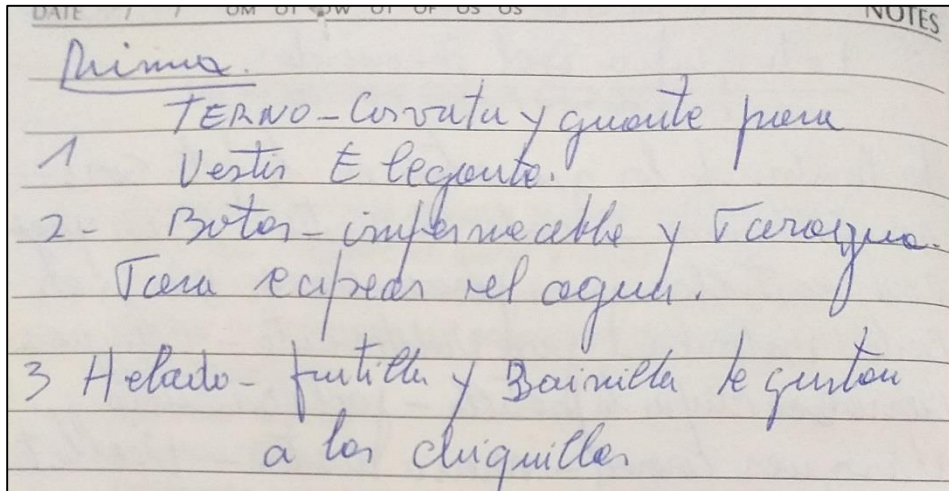 DATE / / OM OT OW OT OF OS OS
NOTES
Rima.
TERNO - Corvata y guante para
1 Vestir Elegante.
2- Botas - impermeable y Paragua.
Para capear el agua.
3 Helado - frutilla y Bainilla le gustan
a los chiquillos